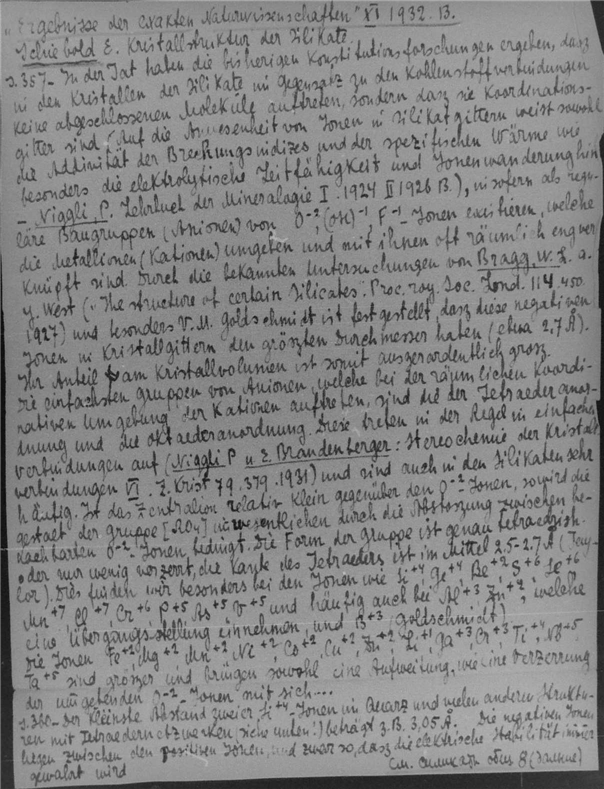 "Ergebnisse der exakten Naturwissenschaften" XI 1932. B.
Schiebold E. Kristallstruktur der Silikate
S. 357 – In der Tat haben die bisherigen Konstitutionsforschungen ergeben, dasz
in den Kristallen der Silikate im Gegensatz zu den Kohlenstoffverbindungen
keine abgeschlossenen Moleküle auftreten, sondern dasz sie Koordenations-
gitter sind (Auf die Anwesenheit von Ionen in Silikatgittern weist sowohl
die Addivität der Brechungsindizes und der spezifischen Wärme wie
besonders die elektrolytische Leitfähigkeit und Ionenwanderung hin
– Niggli, P. Lehrbuch der Mineralogie I. 1924 II 1926 B.), insofern als regu-
läre Baugruppen (Anionen) von O⁻², (OH)⁻¹, F⁻¹ – Ionen existieren, welche
die Metallionen (Kationen) umgeben und mit ihnen oft räumlich eng ver
knüpft sind. Durch die bekannten Untersuchungen von Bragg, W. L. a.
y. West ("The structure of certain Silicates". Proc. roy. Soc. Lond. 114. 450.
1927) und besonders V. M. Goldschmidt ist festgestellt, dasz diese negativen
Ionen in Kristallgittern den gröszten Durchmesser haben (etwa 2,7 Å).
Ihr Anteil am Kristallvolumen ist somit auszerordentlich grosz.
Die einfachsten Gruppen von Anionen, welche bei der räumlichen Koordi-
nativen Umgebung der Kationen auftreten, sind die der Tetraederanor-
dnung und die Oktaederanordnung. Diese treten in der Regel in einfachen
Verbindungen auf (Niggli P. u. E. Brandenberger: Stereochemie der Kristall
verbindungen VI. Z. Krist 79. 379. 1931) und sind auch in den Silikaten sehr
häufig. Ist das Zentralion relativ klein gegenüber den O⁻² Ionen, so wird die
gestalt der Gruppe im wesentlichen durch die Abstoszung zwischen be-
nachbarten O⁻² – Ionen bedingt. Die Form der Gruppe ist genau tetraedrisch
oder nur wenig verzerrt, die Kante des Tetraeders ist im Mittel 2.5–2.7 Å (Tay-
lor). Dies finden wir besonders bei den Ionen wie Si⁺⁴, Ge⁺⁴, Be⁺², S⁺⁶, Se⁺⁶
Mn⁺⁷, Cl⁺⁷, Cr⁺⁶, P⁺⁵, As⁺⁵, V⁺⁵ und häufig auch bei Al⁺³, Zn⁺², welche
eine Übergangsstellung einnehmen, und B⁺³ (Goldschmidt)
Die Ionen Fe⁺², Mg⁺², Mn⁺², Ni⁺², Co⁺², Cu⁺², Li⁺¹, Ga⁺³, Cr⁺³, Ti⁺⁴, Nb⁺⁵,
Ta⁺⁵ sind gröszer und bringen sowohl eine Aufweitung, wie eine Verzerrung
der umgebenden O⁻² – Ionen mit sich...
S. 360 – Der kleinste Abstand zweier Si⁺⁴ – Ionen im Quarz und vielen anderen Struktu-
ren mit Tetraedernetzwerken (siehe unten!) beträgt z. B. 3,05 Å. Die negativen Ionen
liegen zwischen den positiven Ionen, und zwar so, dasz die elektrische Stabilität immer
gewahrt wird
См. силикаты общ 8